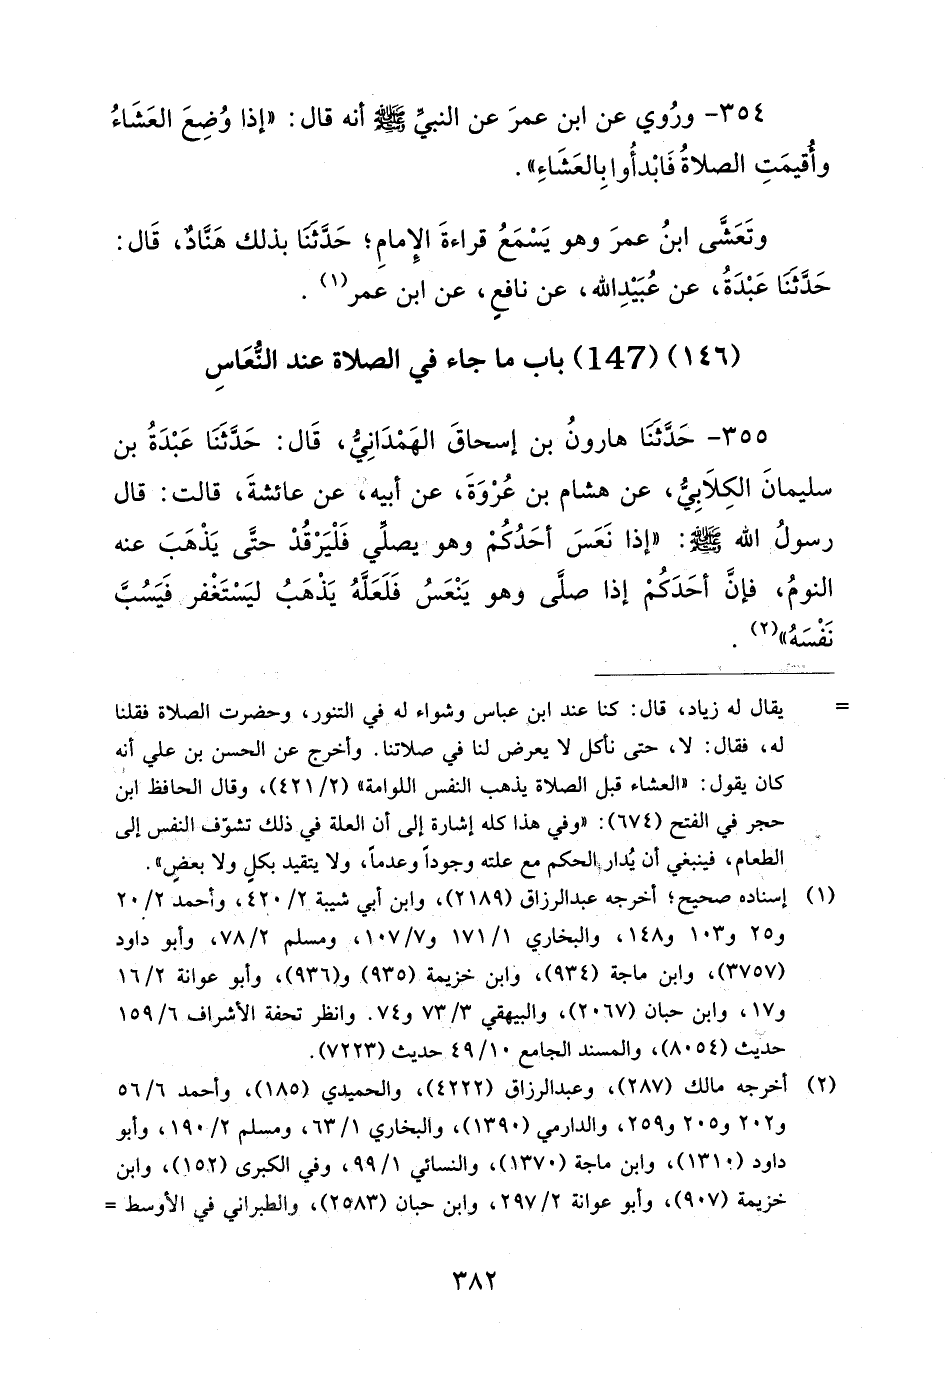 ٣٥٤- ورُوي عن ابن عمرَ عن النبيِّ ﷺ أنه قال: «إذا وُضِعَ العَشَاءُ
وأُقيمَتِ الصلاةُ فَابْدأُوا بِالعَشَاءِ».
وتَعَشَّى ابنُ عمرَ وهو يَسْمَعُ قراءةَ الإِمامِ؛ حَدَّثَنَا بذلك هَنَّادٌ، قَال:
حَدَّثَنَا عَبْدَةُ، عن عُبَيْدِالله، عن نافعٍ، عن ابن عمر(١) .
(١٤٦) (147) باب ما جاء في الصلاة عند النُّعَاسِ
٣٥٥- حَدَّثَنَا هارونُ بن إسحاقَ الهَمْدَانِيُّ، قَال: حَدَّثَنَا عَبْدَةُ بن
سليمانَ الكِلَابِيُّ، عن هشام بن عُرْوَةَ، عن أبيه، عن عائشةَ، قالت: قال
رسولُ الله ﷺ: «إذا نَعَسَ أحَدُكُمْ وهو يصلِّي فَلْيَرْقُدْ حتَّى يَذْهَبَ عنه
النومُ، فإنَّ أحَدَكُمْ إذا صلَّى وهو يَنْعَسُ فَلَعَلَّهُ يَذْهَبُ ليَسْتَغْفر فَيَسُبَّ
نَفْسَهُ»(٢) .
= يقال له زياد، قال: كنا عند ابن عباس وشواء له في التنور، وحضرت الصلاة فقلنا
له، فقال: لا، حتى نأكل لا يعرض لنا في صلاتنا. وأخرج عن الحسن بن علي أنه
كان يقول: «العشاء قبل الصلاة يذهب النفس اللوامة» (٤٢١/٢)، وقال الحافظ ابن
حجر في الفتح (٦٧٤): «وفي هذا كله إشارة إلى أن العلة في ذلك تشوّف النفس إلى
الطعام، فينبغي أن يُدار الحكم مع علته وجوداً وعدماً، ولا يتقيد بكلٍ ولا بعضٍ».
(١) إسناده صحيح؛ أخرجه عبدالرزاق (٢١٨٩)، وابن أبي شيبة ٤٢٠/٢، وأحمد ٢٠/٢
و٢٥ و١٠٣ و١٤٨، والبخاري ١٧١/١ و١٠٧/٧، ومسلم ٧٨/٢، وأبو داود
(٣٧٥٧)، وابن ماجة (٩٣٤)، وابن خزيمة (٩٣٥) و(٩٣٦)، وأبو عوانة ١٦/٢
و١٧، وابن حبان (٢٠٦٧)، والبيهقي ٧٣/٣ و٧٤. وانظر تحفة الأشراف ١٥٩/٦
حديث (٨٠٥٤)، والمسند الجامع ٤٩/١٠ حديث (٧٢٢٣).
(٢) أخرجه مالك (٢٨٧)، وعبدالرزاق (٤٢٢٢)، والحميدي (١٨٥)، وأحمد ٥٦/٦
و٢٠٢ و٢٠٥ و٢٥٩، والدارمي (١٣٩٠)، والبخاري ٦٣/١، ومسلم ١٩٠/٢، وأبو
داود (١٣١٠)، وابن ماجة (١٣٧٠)، والنسائي ٩٩/١، وفي الكبرى (١٥٢)، وابن
خزيمة (٩٠٧)، وأبو عوانة ٢٩٧/٢، وابن حبان (٢٥٨٣)، والطبراني في الأوسط =
٣٨٢